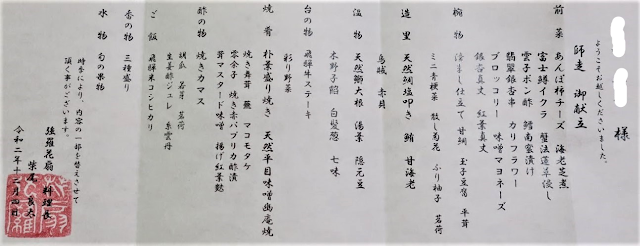 様
ようこそお越しくださいました。
師走 御献立
前菜 あんぽ柿チーズ 海老芝煮
富士鱒イクラ 蟹法蓮草浸し
雲子ポン酢 鱈南蛮漬け
翡翠銀杏串 カリフラワー
ブロッコリー 味噌マヨネーズ
銀杏真丈 紅葉真丈
椀物 清まし仕立て 甘鯛 玉子豆腐 平茸
ミニ青梗菜 散し菊花 ふり柚子 茗荷
造里 天然鯛塩叩き 鮪 甘海老
烏賊 赤貝
温物 天然鰤大根 湯葉 隠元豆
木野子餡 白髪葱 七味
台の物 飛騨牛ステーキ
彩り野菜
焼肴 朴葉盛り焼き 天然平目味噌幽庵焼
焼き舞茸 蓮 マコモタケ
零余子 焼き赤パプリカ酢漬
茸マスタード味噌 揚げ紅葉麩
酢の物 焼きカマス
胡瓜 若芽 茗荷
生姜酢ジュレ 糸雲丹
ご飯 飛騨米コシヒカリ
香の物 三種盛り
水物 旬の果物
時季により、内容の一部を替えさせて
頂く事がございます。
強羅花扇 料理長
柴尾 良太
令和二年十二月四日